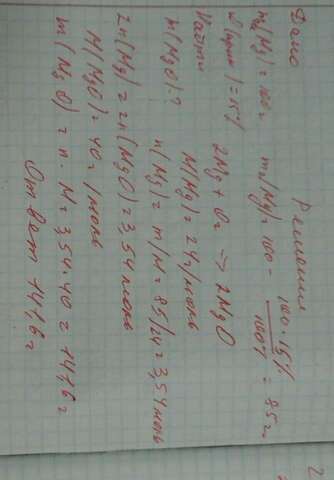 Дано
m(Mg) = 100г
W(прим) = 15%
Найти
m(MgO)-?
Решение
m(Mg) = 100 - 100·15% / 100% = 85г
2Mg + O₂ → 2MgO
M(Mg) = 24г/моль
n(Mg) = m/M = 85/24 = 3,54 моль
2n(Mg) = 2n(MgO) = 3,54 моль
M(MgO) = 40г/моль
m(MgO) = n·M = 3,54·40 = 141,6г
Ответ 141,6г
2